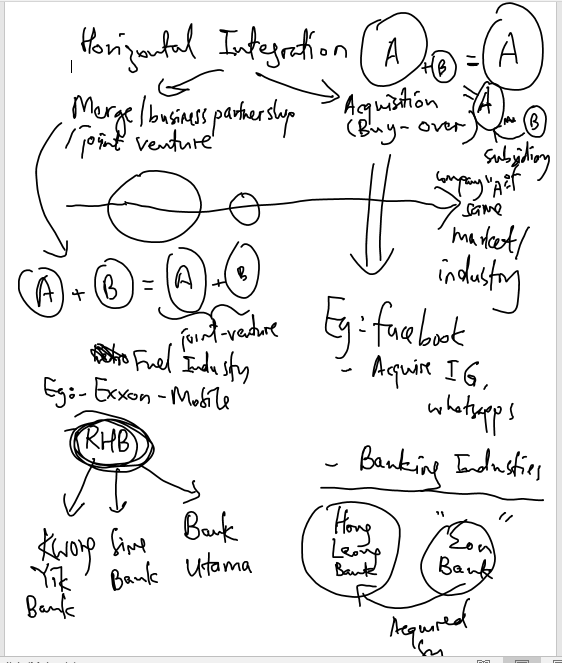 Horizontal Integration
A + B = A
Merge/business partnership
/joint venture
Acquisition
(Buy-over)
A
B
subsidiary
company "A" of
same
market/
industry
A + B = A + B
joint-venture
Fuel Industry
Eg:- Exxon-Mobile
RHB
Kwong
Yik
Bank
Sime
Bank
Bank
Utama
Eg: facebook
- Acquire IG,
whatsapps
- Banking Industies
Hong
Leong
Bank
" "
Eon
Bank
Acquired